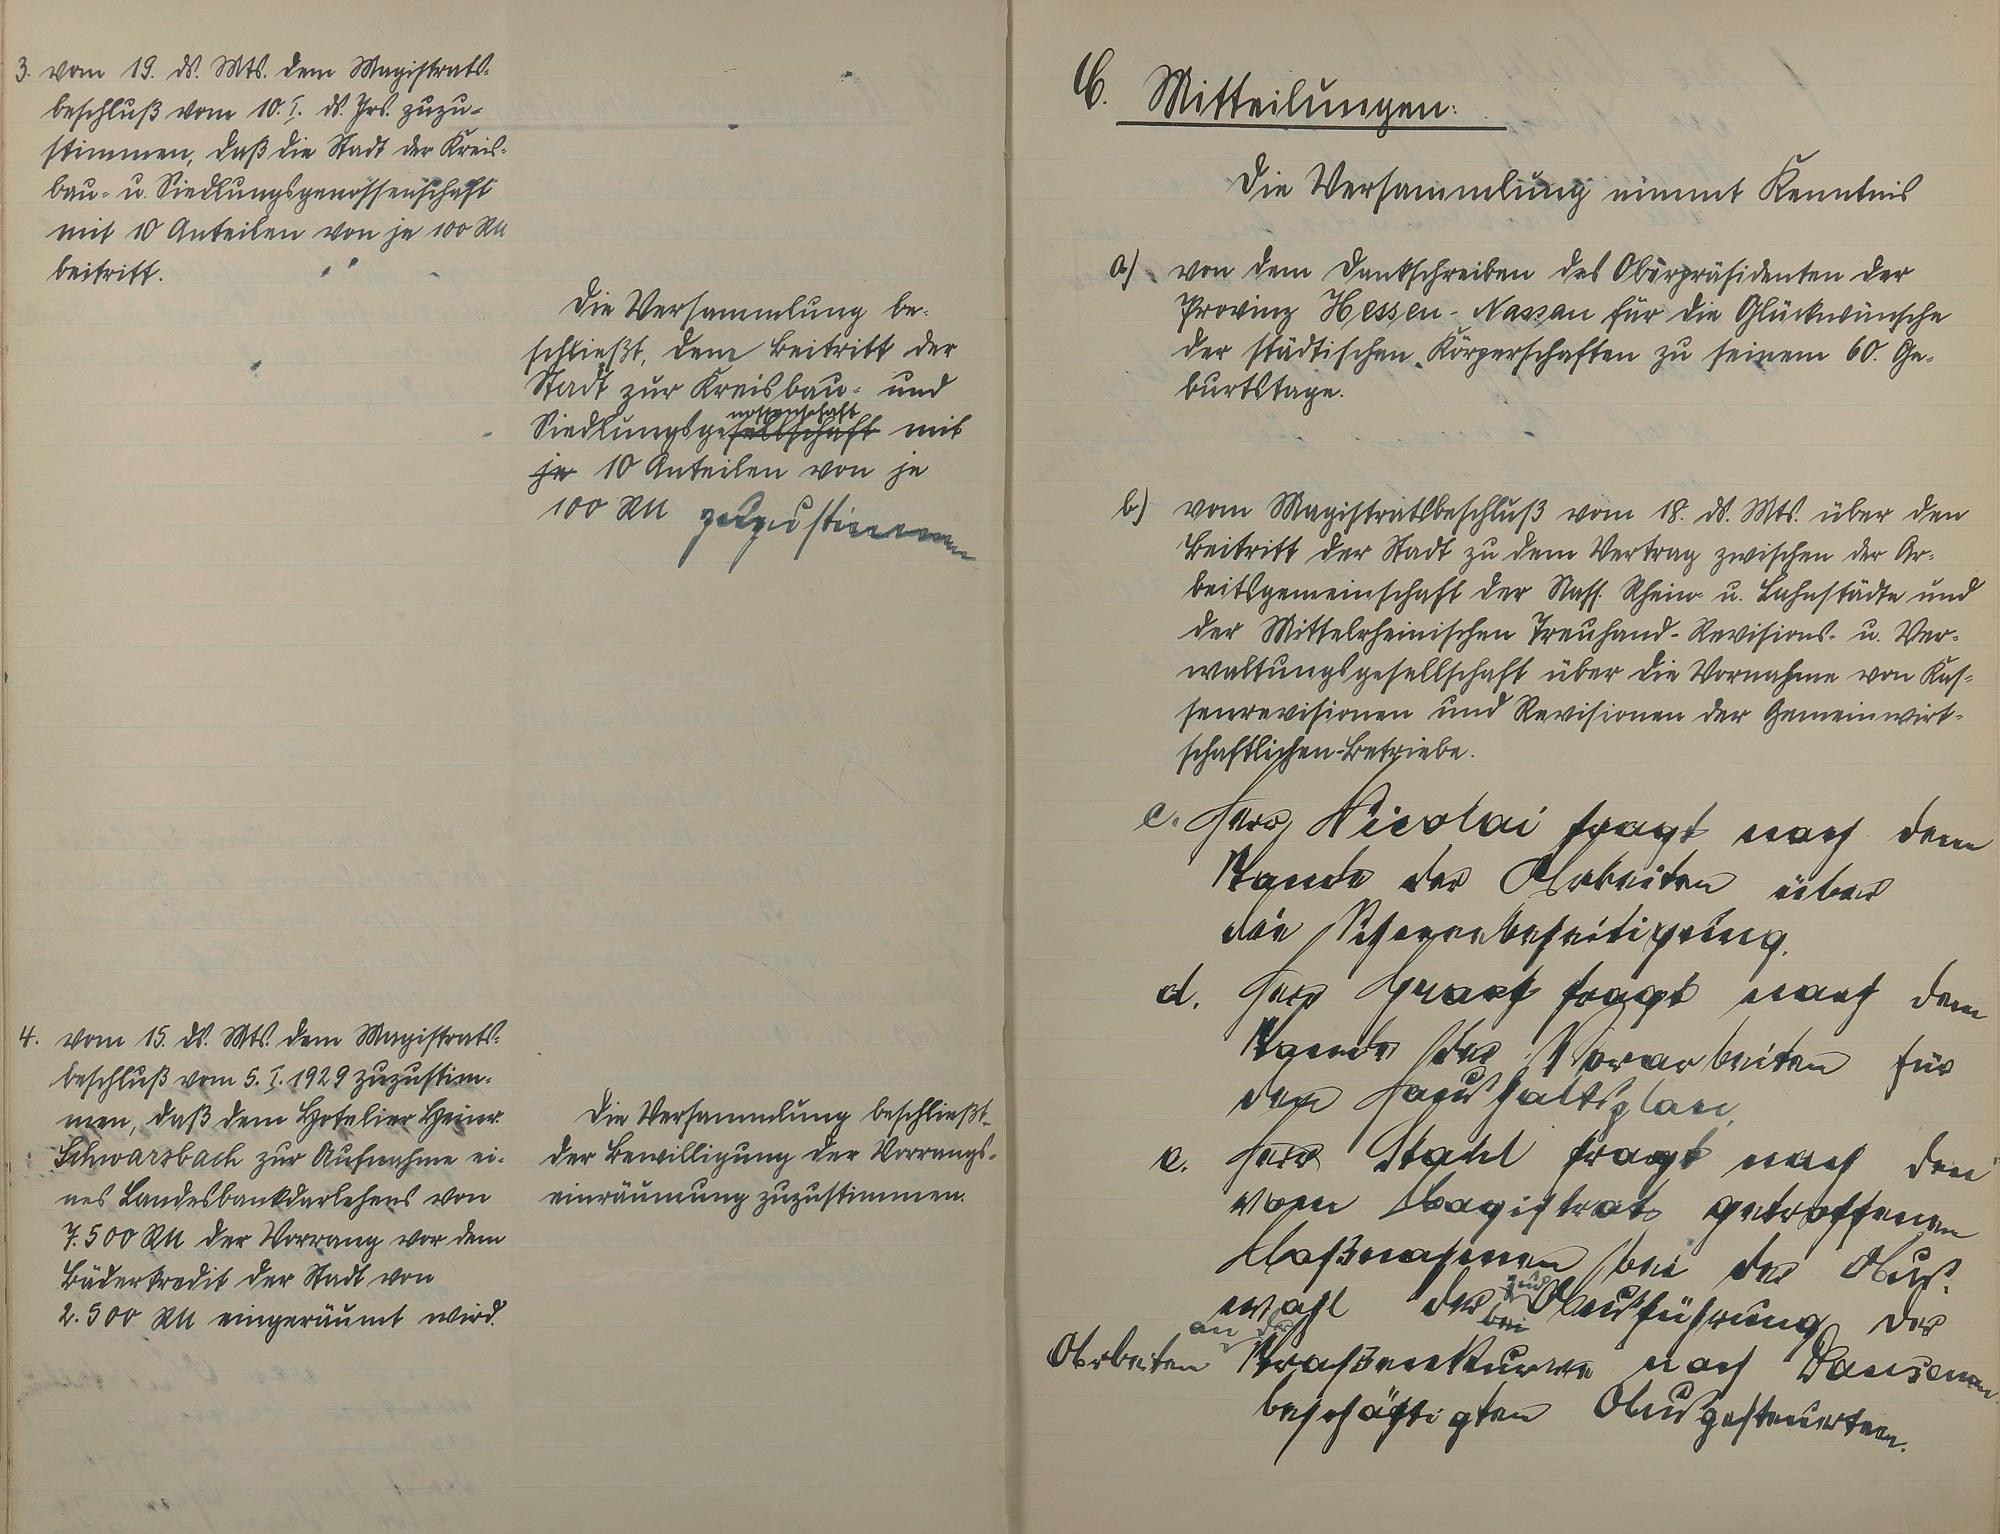 3. vom 19. ds. Mts. dem Magistrats-
beschluß vom 10. I. ds. Jrs. zuzu-
stimmen, daß die Stadt der Kreis-
bau- u. Siedlungsgenossenschaft
mit 10 Anteilen von je 100 RM
beitritt.
Die Versammlung be-
schließt, dem Beitritt der
Stadt zur Kreisbau- und
nossenschaft
Siedlungsgesellschaft mit
je 10 Anteilen von je
100 RM zuzustimmen
4. vom 15. ds. Mts. dem Magistrats-
beschluß vom 5. I. 1929 zuzustim-
men, daß dem Hotelier Heinr.
Schwarzbach zur Aufnahme ei-
nes Landesbankdarlehens von
7.500 RM der Vorrang vor dem
Bäderkredit der Stadt von
2.500 RM eingeräumt wird.
Die Versammlung beschließt,
der Bewilligung der Vorrangs-
einräumung zuzustimmen.
C. Mitteilungen:
Die Versammlung nimmt Kenntnis
a) von dem Dankschreiben des Oberpräsidenten der
Provinz Hessen-Nassau für die Glückwünsche
der städtischen Körperschaften zu seinem 60. Ge-
burtstage.
b) vom Magistratsbeschluß vom 18. ds. Mts. über den
Beitritt der Stadt zu dem Vertrag zwischen der Ar-
beitsgemeinschaft der Nass. Rhein- u. Lahnstädte und
der Mittelrheinischen Treuhand- Revisions- u. Ver-
waltungsgesellschaft über die Vornahme von Kas-
senrevisionen und Revisionen der Gemeinwirt-
schaftlichen-Betriebe.
c. Herr Nicolai fragt nach dem
Stande der Arbeiten über
die
d. Herr Graef fragt nach dem
Stande der Vorarbeiten für
den Haushaltsplan
e. Herr Stahl fragt nach den
vom Magistrat getroffenen
Maßnahmen bei der Aus-
zur
wahl der bei Ausführung der
an der
Arbeiten Straßenkurve nach Dausenau
beschäftigten Ausgesteuerten.